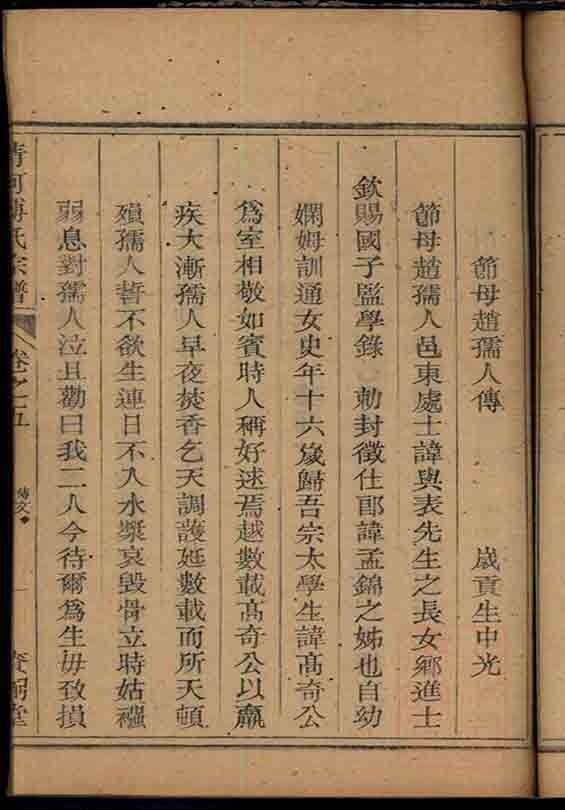 節母趙孺人傳 歲貢生中光
節母趙孺人邑東處士諱與表先生之長女鄉進士
欽賜國子監學錄 勅封徵仕郎諱孟錦之姊也自幼
嫻姆訓通女史年十六歲歸吾宗太學生諱髙奇公
爲室相敬如賓時人稱好逑焉越數載髙奇公以羸
疾大漸孺人早夜焚香乞天調護延數載而所天頓
殞孺人誓不欲生連日不入水漿哀毀骨立時姑襁
弱息對孺人泣且勸曰我二人今待爾爲生毋致損
清河傅氏宗譜 卷之五 傳文 一